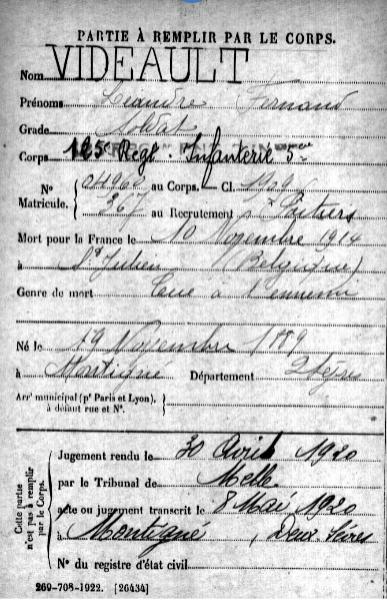 PARTIE À REMPLIR PAR LE CORPS.
Nom VIDEAULT
Prénoms Léandre Fernand
Grade Soldat
Corps 125e Regt. Infanterie
N° Matricule. au Corps. — Cl. 1909
367 au Recrutement Poitiers
Mort pour la France le 10 Novembre 1914
à St Julien (Belgique)
Genre de mort Tué à l'ennemi
Né le 19 Novembre 1889
à Montigné Département 2 Sèvres
Arrt municipal (pr Paris et Lyon),
à défaut rue et N°.
Cette partie n'est pas à remplir par le Corps.
Jugement rendu le 30 Avril 1920
par le Tribunal de Melle
acte ou jugement transcrit le 8 Mai 1920
à Montigné Deux Sèvres
N° du registre d'état civil
269-708-1922. [26434]